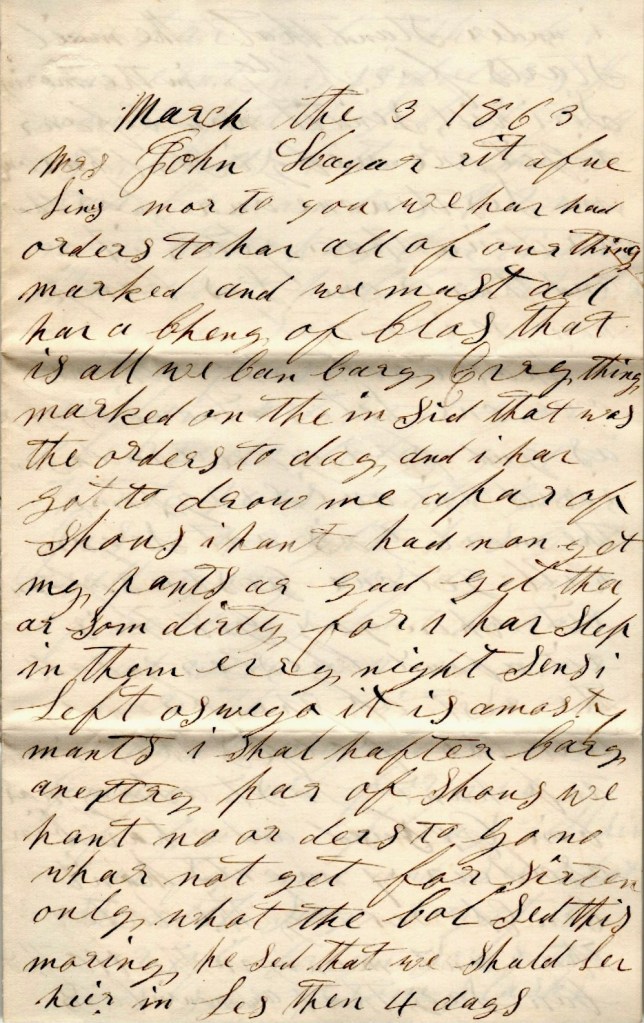 March the 3 1863
Mrs John Sbagar rit a fue
Lins mor to you we har had
orders to har all of our thing
marked and we mast all
har a Cheng of Clos that
is all we Can Cary Evry thing
marked on the in Sid that was
the orders to day and i har
got to drow me a par of
Shous i hant had non yet
my pants ar gad yet tha
ar som dirty for i har Slep
in them evry night Sens i
Left oswego it is a most
mants i shal hafter Cary
anextry par of Shous we
hant no or ders to Go no
whar not yet for sirten
only what the Col Sed this
moring he sed that we shald Ler
heir in Les then 4 days